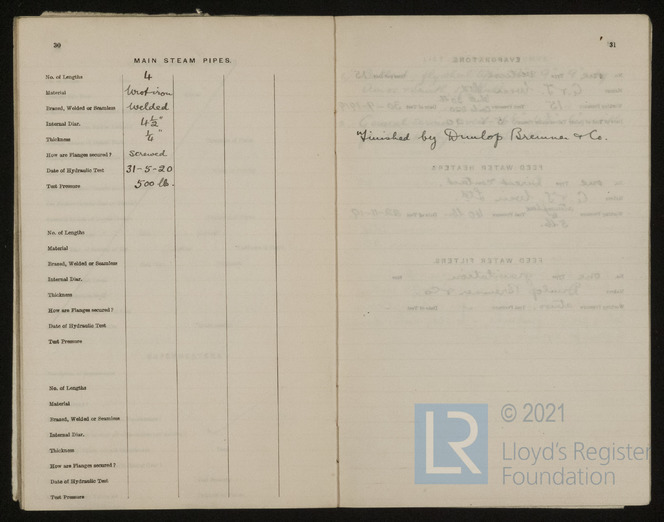 30
MAIN STEAM PIPES.
No. of Lengths 4
Material Wrot iron
Brazed, Welded or Seamless Welded
Internal Diar. 4½"
Thickness ¼"
How are Flanges secured? Screwed
Date of Hydraulic Test 31-5-20
Test Pressure 500 lb.
No. of Lengths
Material
Brazed, Welded or Seamless
Internal Diar.
Thickness
How are Flanges secured?
Date of Hydraulic Test
Test Pressure
No. of Lengths
Material
Brazed, Welded or Seamless
Internal Diar.
Thickness
How are Flanges secured?
Date of Hydraulic Test
Test Pressure
31
Finished by Dunlop Bremner & Co.
LR
© 2021
Lloyd's Register
Foundation